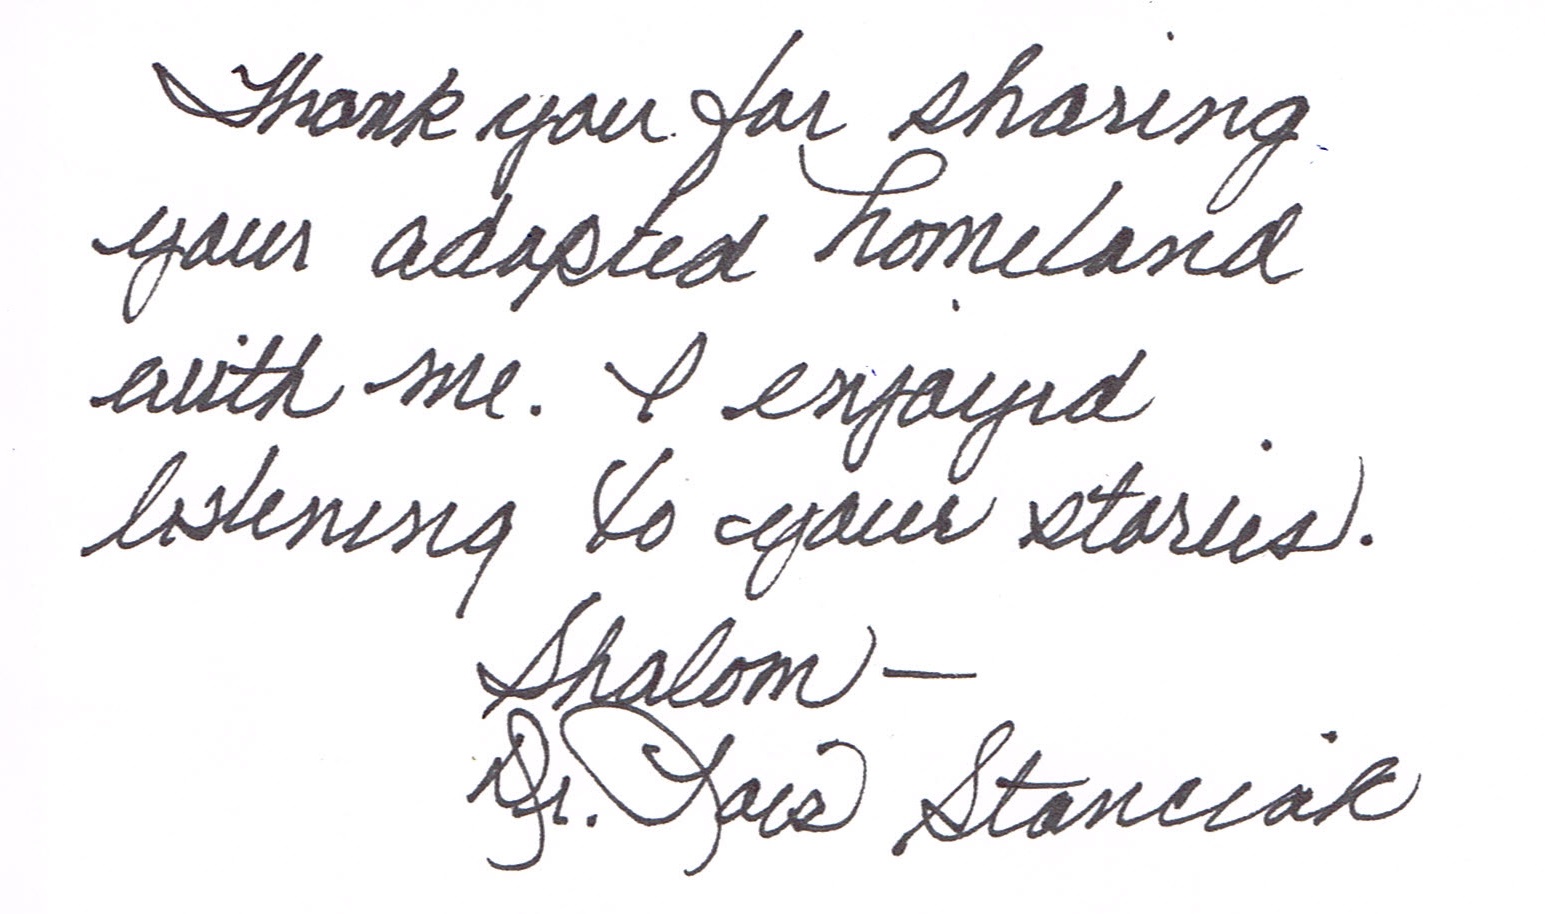 Thank you for sharing
your adopted homeland
with me. I enjoyed
listening to your stories.
Shalom —
Dr. Lois Stanciak